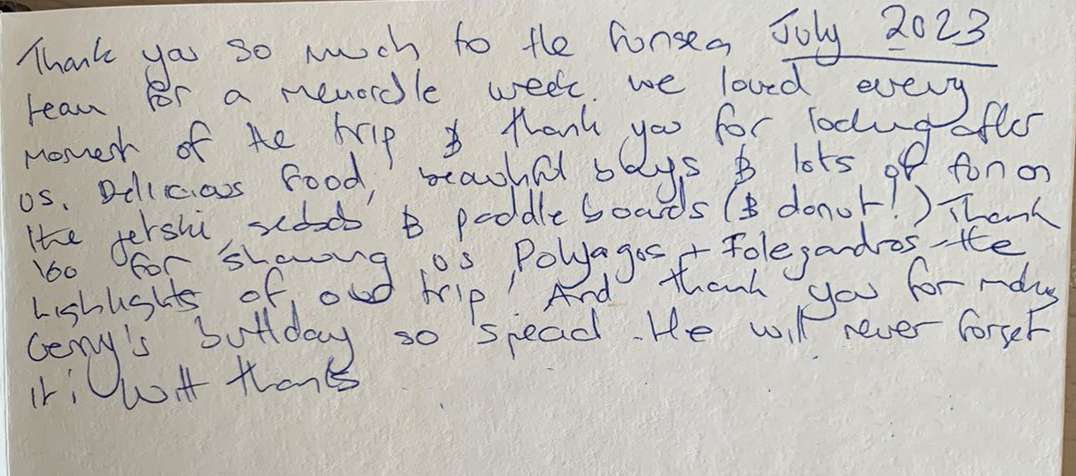 Thank you so much to the Funsea July 2023
team for a memorable week. We loved every
moment of the trip & thank you for looking after
us. Delicious food, beautiful bays & lots of fun on
the jetski, seabob & paddle boards (& donut!) Thank
you for showing us Polyagos + Folegandros - the
highlights of our trip! And thank you for making
Gerry's birthday so special. He will never forget
it! With thanks